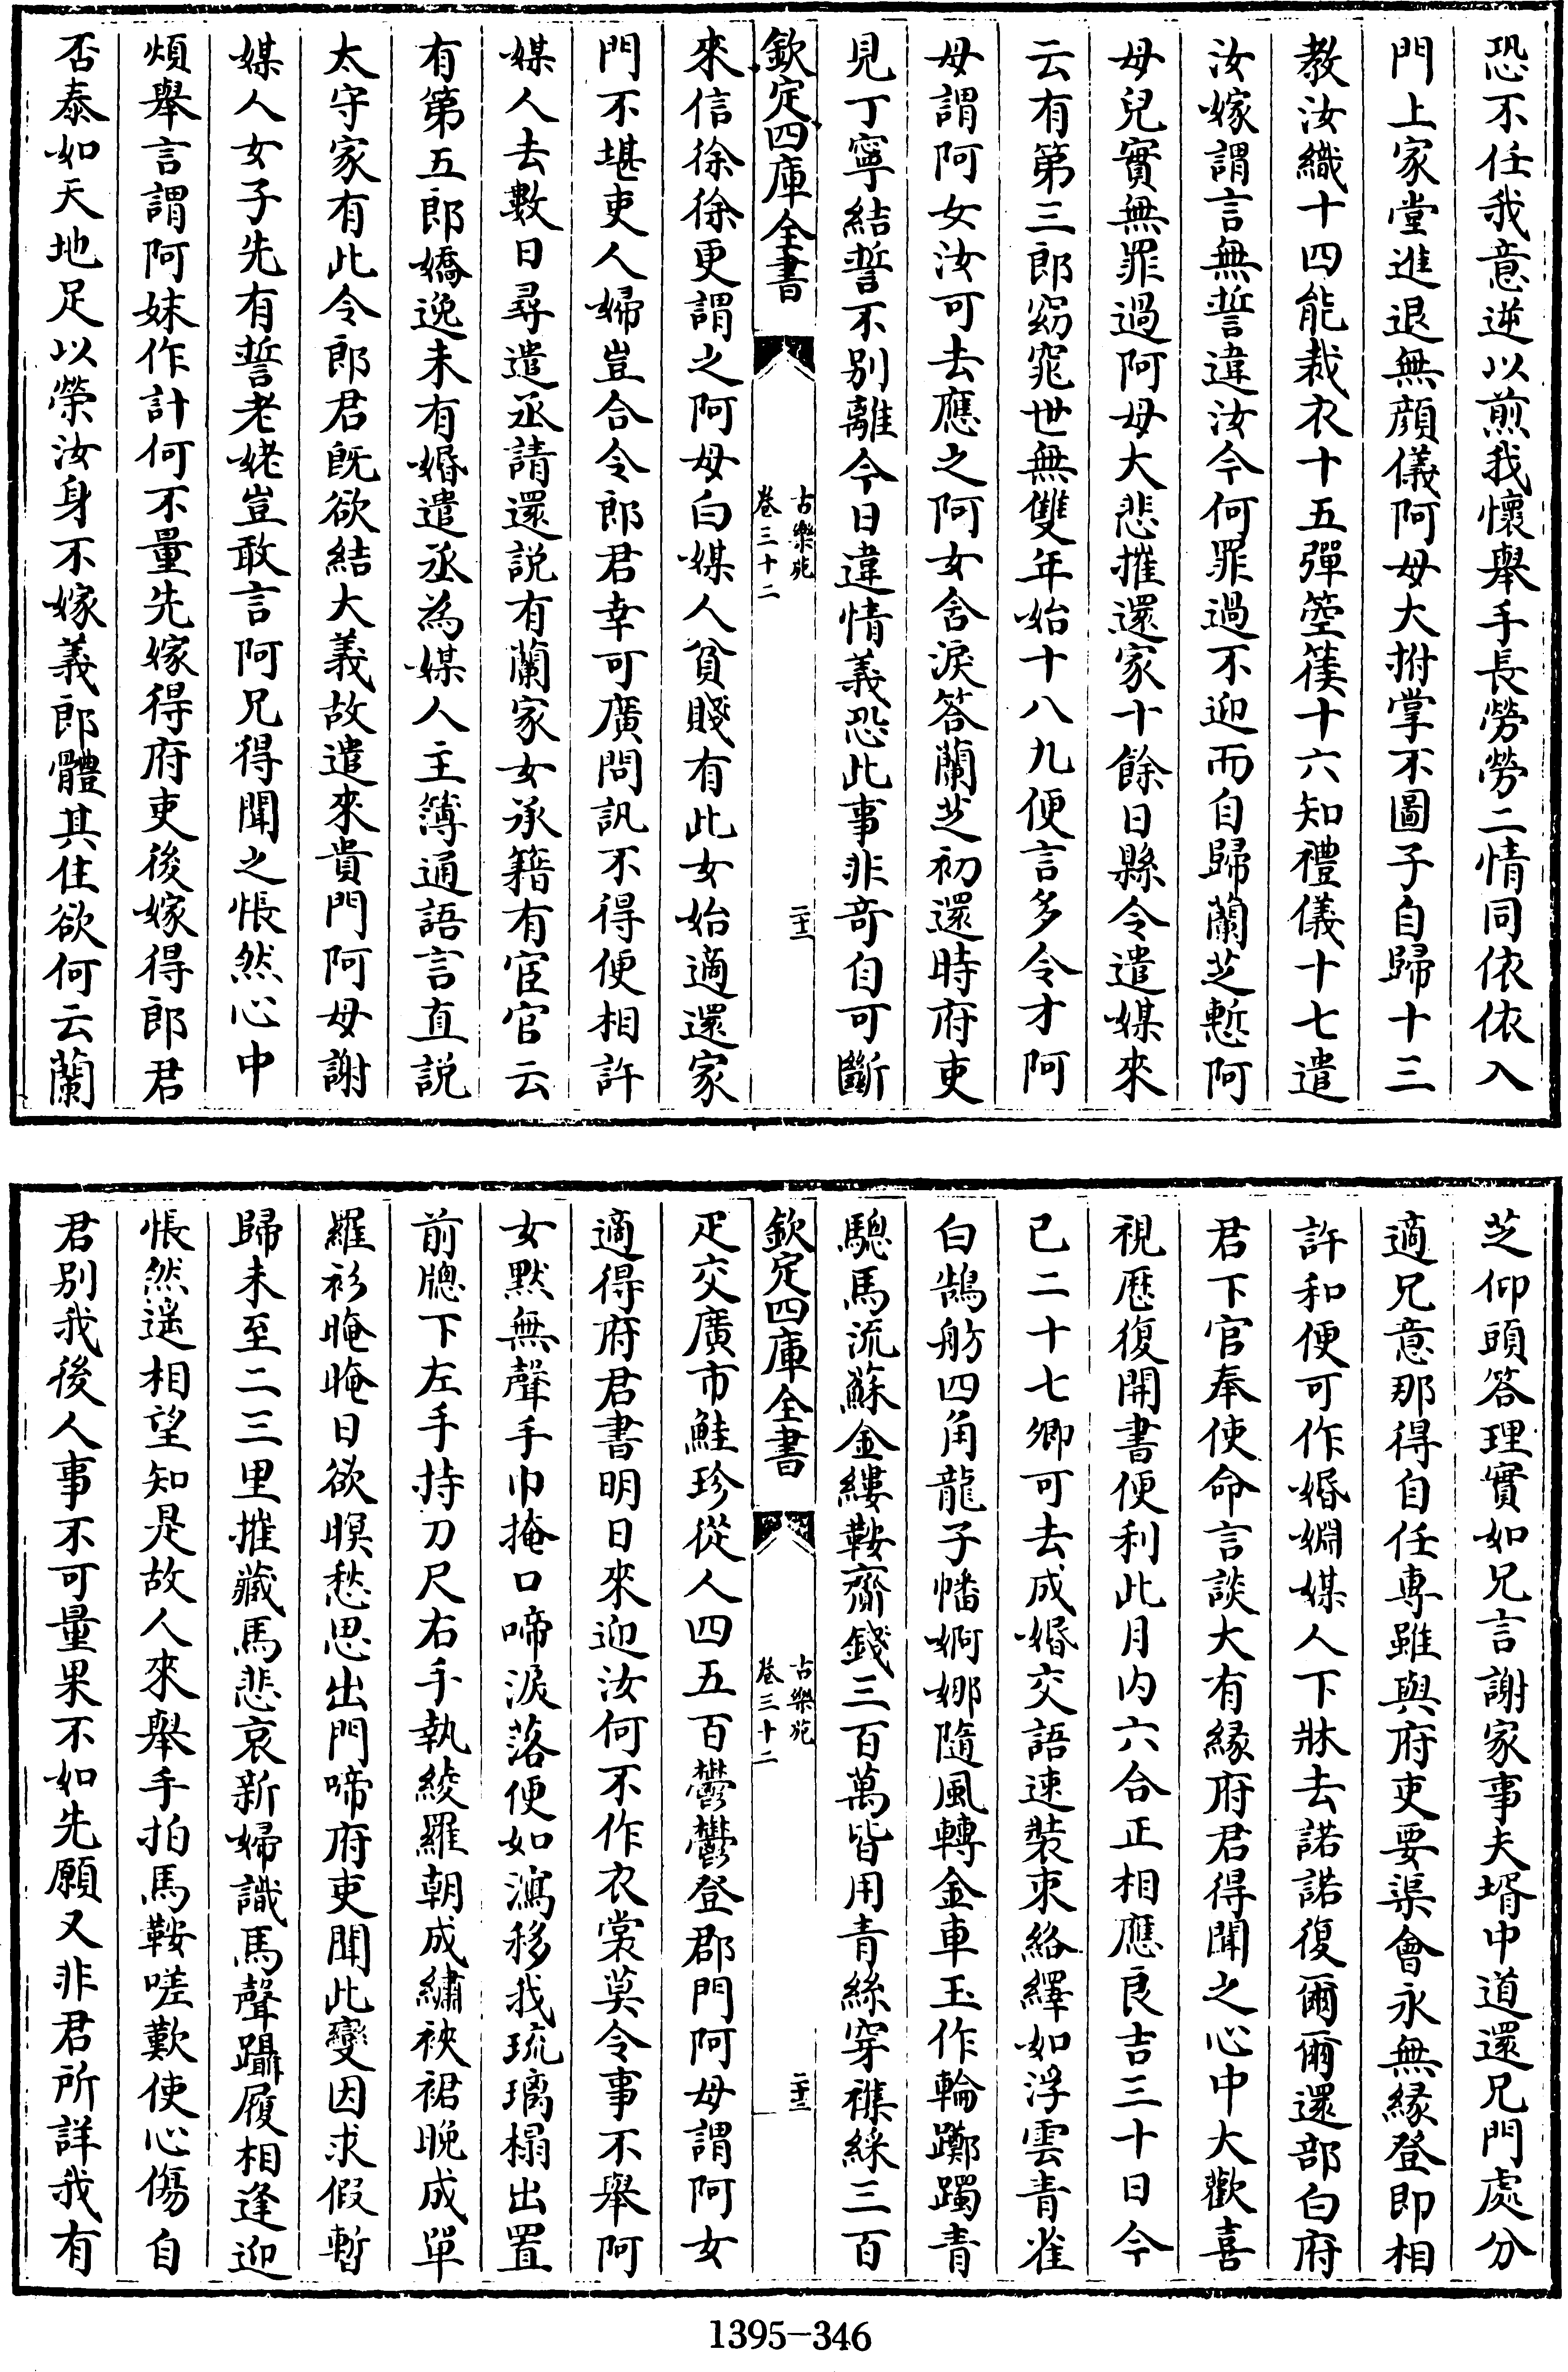 恐不任我意逆以煎我懷舉手長勞勞二情同依依入
門上家堂進退無顔儀阿母大拊掌不圖子自歸十三
教汝織十四能裁衣十五彈箜篌十六知禮儀十七遣
汝嫁謂言無誓違汝今何罪過不迎而自歸蘭芝慙阿
母兒實無罪過阿母大悲摧還家十餘日縣令遣媒來
云有第三郎窈窕世無雙年始十八九便言多令才阿
母謂阿女汝可去應之阿女含淚答蘭芝初還時府吏
見丁寧結誓不别離今日違情義恐此事非奇自可斷
欽定四庫全書
古樂苑
卷三十二
二十二
來信徐徐更謂之阿母白媒人貧賤有此女始適還家
門不堪吏人婦豈合令郎君幸可廣問訊不得便相許
媒人去數日尋遣丞請還説有蘭家女承籍有宦官云
有第五郎嬌逸未有婚遣丞為媒人主簿通語言直説
太守家有此令郎君既欲結大義故遣來貴門阿母謝
媒人女子先有誓老姥豈敢言阿兄得聞之悵然心中
煩舉言謂阿妹作計何不量先嫁得府吏後嫁得郎君
否泰如天地足以榮汝身不嫁義郎體其住欲何云蘭
芝仰頭答理實如兄言謝家事夫壻中道還兄門處分
適兄意那得自任専雖與府吏要渠會永無緣登即相
許和便可作婚姻媒人下牀去諾諾復爾爾還部白府
君下官奉使命言談大有緣府君得聞之心中大歡喜
視歴復開書便利此月内六合正相應良吉三十日今
已二十七卿可去成婚交語速裝束絡繹如浮雲青雀
白鵠舫四角龍子幡婀娜隨風轉金車玉作輪躑躅青
驄馬流蘇金縷鞍齎錢三百萬皆用青絲穿襍綵三百
欽定四庫全書
古樂苑
卷三十二
二十三
疋交廣市鮭珍從人四五百鬱鬱登郡門阿母謂阿女
適得府君書明日來迎汝何不作衣裳莫令事不舉阿
女默無聲手巾掩口啼淚落便如瀉移我琉璃榻出置
前牕下左手持刀尺右手執綾羅朝成繡裌裙晚成單
羅衫晻晻日欲暝愁思出門啼府吏聞此變因求假暫
歸未至二三里摧藏馬悲哀新婦識馬聲躡履相逢迎
悵然遥相望知是故人來舉手拍馬鞍嗟歎使心傷自
君别我後人事不可量果不如先願又非君所詳我有
1395-346